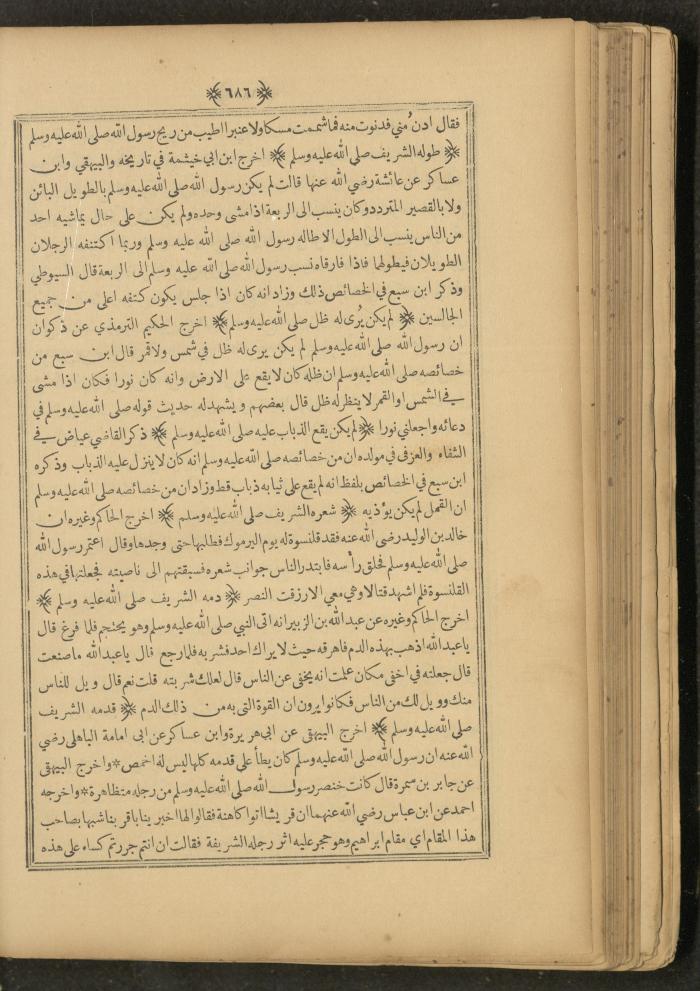 ٦٨٦
فقال ادن مني فدنوت منه فما شممت مسكا ولا عنبرا اطيب من ريح رسول الله صلى الله عليه وسلم
طوله الشريف صلى الله عليه وسلم اخرج ابن ابي خيثمة في تاريخه والبيهقي وابن
عساكر عن عائشة رضي الله عنها قالت لم يكن رسول الله صلى الله عليه وسلم بالطويل البائن
ولا بالقصير المتردد وكان ينسب الى الربعة اذا مشى وحده ولم يكن على حال يماشيه احد
من الناس ينسب الى الطول الا طاله رسول الله صلى الله عليه وسلم وربما اكتنفه الرجلان
الطويلان فيطولهما فاذا فارقاه نسب رسول الله صلى الله عليه وسلم الى الربعة قال السيوطي
وذكر ابن سبع في الخصائص ذلك وزاد انه كان اذا جلس يكون كتفه اعلى من جميع
الجالسين لم يكن يُرى له ظل صلى الله عليه وسلم اخرج الحكيم الترمذي عن ذكوان
ان رسول الله صلى الله عليه وسلم لم يكن يرى له ظل في شمس ولا قمر قال ابن سبع من
خصائصه صلى الله عليه وسلم ان ظله كان لا يقع على الارض وانه كان نورا فكان اذا مشى
في الشمس او القمر لا ينظر له ظل قال بعضهم ويشهد له حديث قوله صلى الله عليه وسلم في
دعائه واجعلني نورا لم يكن يقع الذباب عليه صلى الله عليه وسلم ذكر القاضي عياض في
الشفاء والعزفي في مولده ان من خصائصه صلى الله عليه وسلم انه كان لا ينزل عليه الذباب وذكره
ابن سبع في الخصائص بلفظ انه لم يقع على ثيابه ذباب قط وزاد ان من خصائصه صلى الله عليه وسلم
ان القمل لم يكن يؤذيه شعره الشريف صلى الله عليه وسلم اخرج الحاكم وغيره ان
خالد بن الوليد رضي الله عنه فقد قلنسوة له يوم اليرموك فطلبها حتى وجدها وقال اعتمر رسول الله
صلى الله عليه وسلم فحلق رأسه فابتدر الناس جوانب شعره فسبقتهم الى ناصيته فجعلتها في هذه
القلنسوة فلم اشهد قتالا وهي معي الا رزقت النصر دمه الشريف صلى الله عليه وسلم
اخرج الحاكم وغيره عن عبد الله بن الزبير انه اتى النبي صلى الله عليه وسلم وهو يحتجم فلما فرغ قال
يا عبد الله اذهب بهذه الدم فاهرقه حيث لا يراك احد فشربه فلما رجع قال يا عبد الله ما صنعت
قال جعلته في اخفى مكان علمت انه يخفى عن الناس قال لعلك شربته قلت نعم قال ويل للناس
منك وويل لك من الناس فكانوا يرون ان القوة التي به من ذلك الدم قدمه الشريف
صلى الله عليه وسلم اخرج البيهقي عن ابي هريرة وابن عساكر عن ابى امامة الباهلى رضي
الله عنه ان رسول الله صلى الله عليه وسلم كان يطأ على قدمه كلها ليس له اخمص * واخرج البيهقى
عن جابر بن سمرة قال كانت خنصر رسول الله صلى الله عليه وسلم من رجله متظاهرة * واخرجه
احمد عن ابن عباس رضي الله عنهما ان قريشا اتوا كاهنة فقالوا لها اخبرينا باقربنا شبها بصاحب
هذا المقام اي مقام ابراهيم وهو حجر عليه اثر رجله الشريفة فقالت ان انتم جررتم كساء على هذه